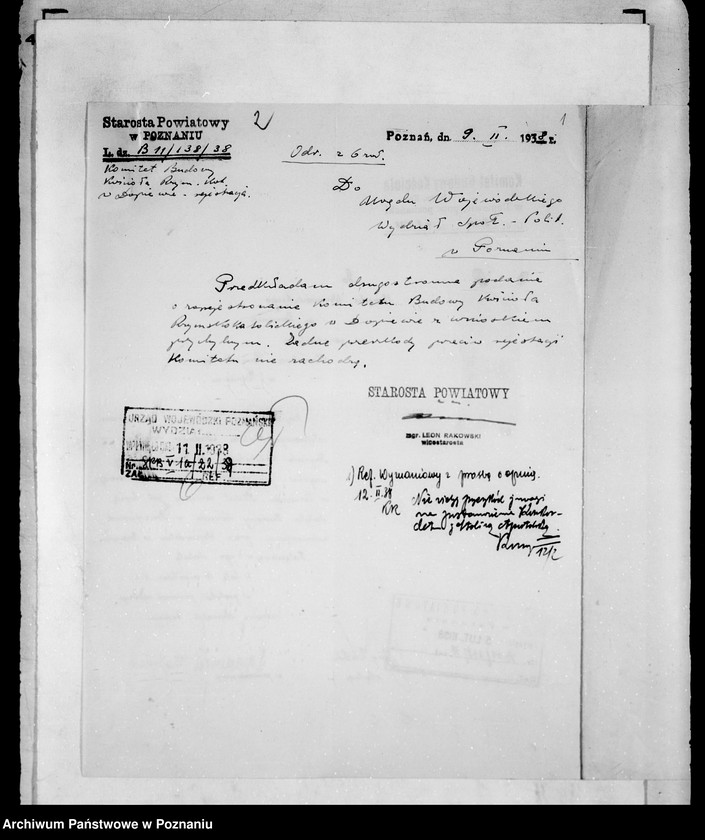 Starosta Powiatowy
w POZNANIU
L. dz. B 11/138/38
Komitet Budowy
Kościoła Rzym. Kat.
w Dopiewie - rejestracja.
2
1
Poznań, dn. 9. II. 1938 r.
Odr. z
Do
Urzędu Wojewódzkiego
Wydział Społ. - Polit.
w Poznaniu
Przedkładam drugostronne podanie
o zarejestrowanie Komitetu Budowy Kościoła
Rzymskokatolickiego w Dopiewie z wnioskiem
przychylnym. Żadne przeszkody przeciw rejestracji
Komitetu nie zachodzą.
STAROSTA POWIATOWY
mgr. LEON RAKOWSKI
wicestarosta
URZĄD WOJEWÓDZKI POZNAŃSKI
WYDZIAŁ
WPŁYNĘŁO DNIA 11 II 1938
Nr. 22/38
ZAŁ. REF.
1) Ref. Wyznaniowy z prośbą o opinię.
12.II.38
Nie widzę przeszkód z uwagi
na postanowienia Konkor-
datu z Stolicą Apostolską.
12/2
Archiwum Państwowe w Poznaniu